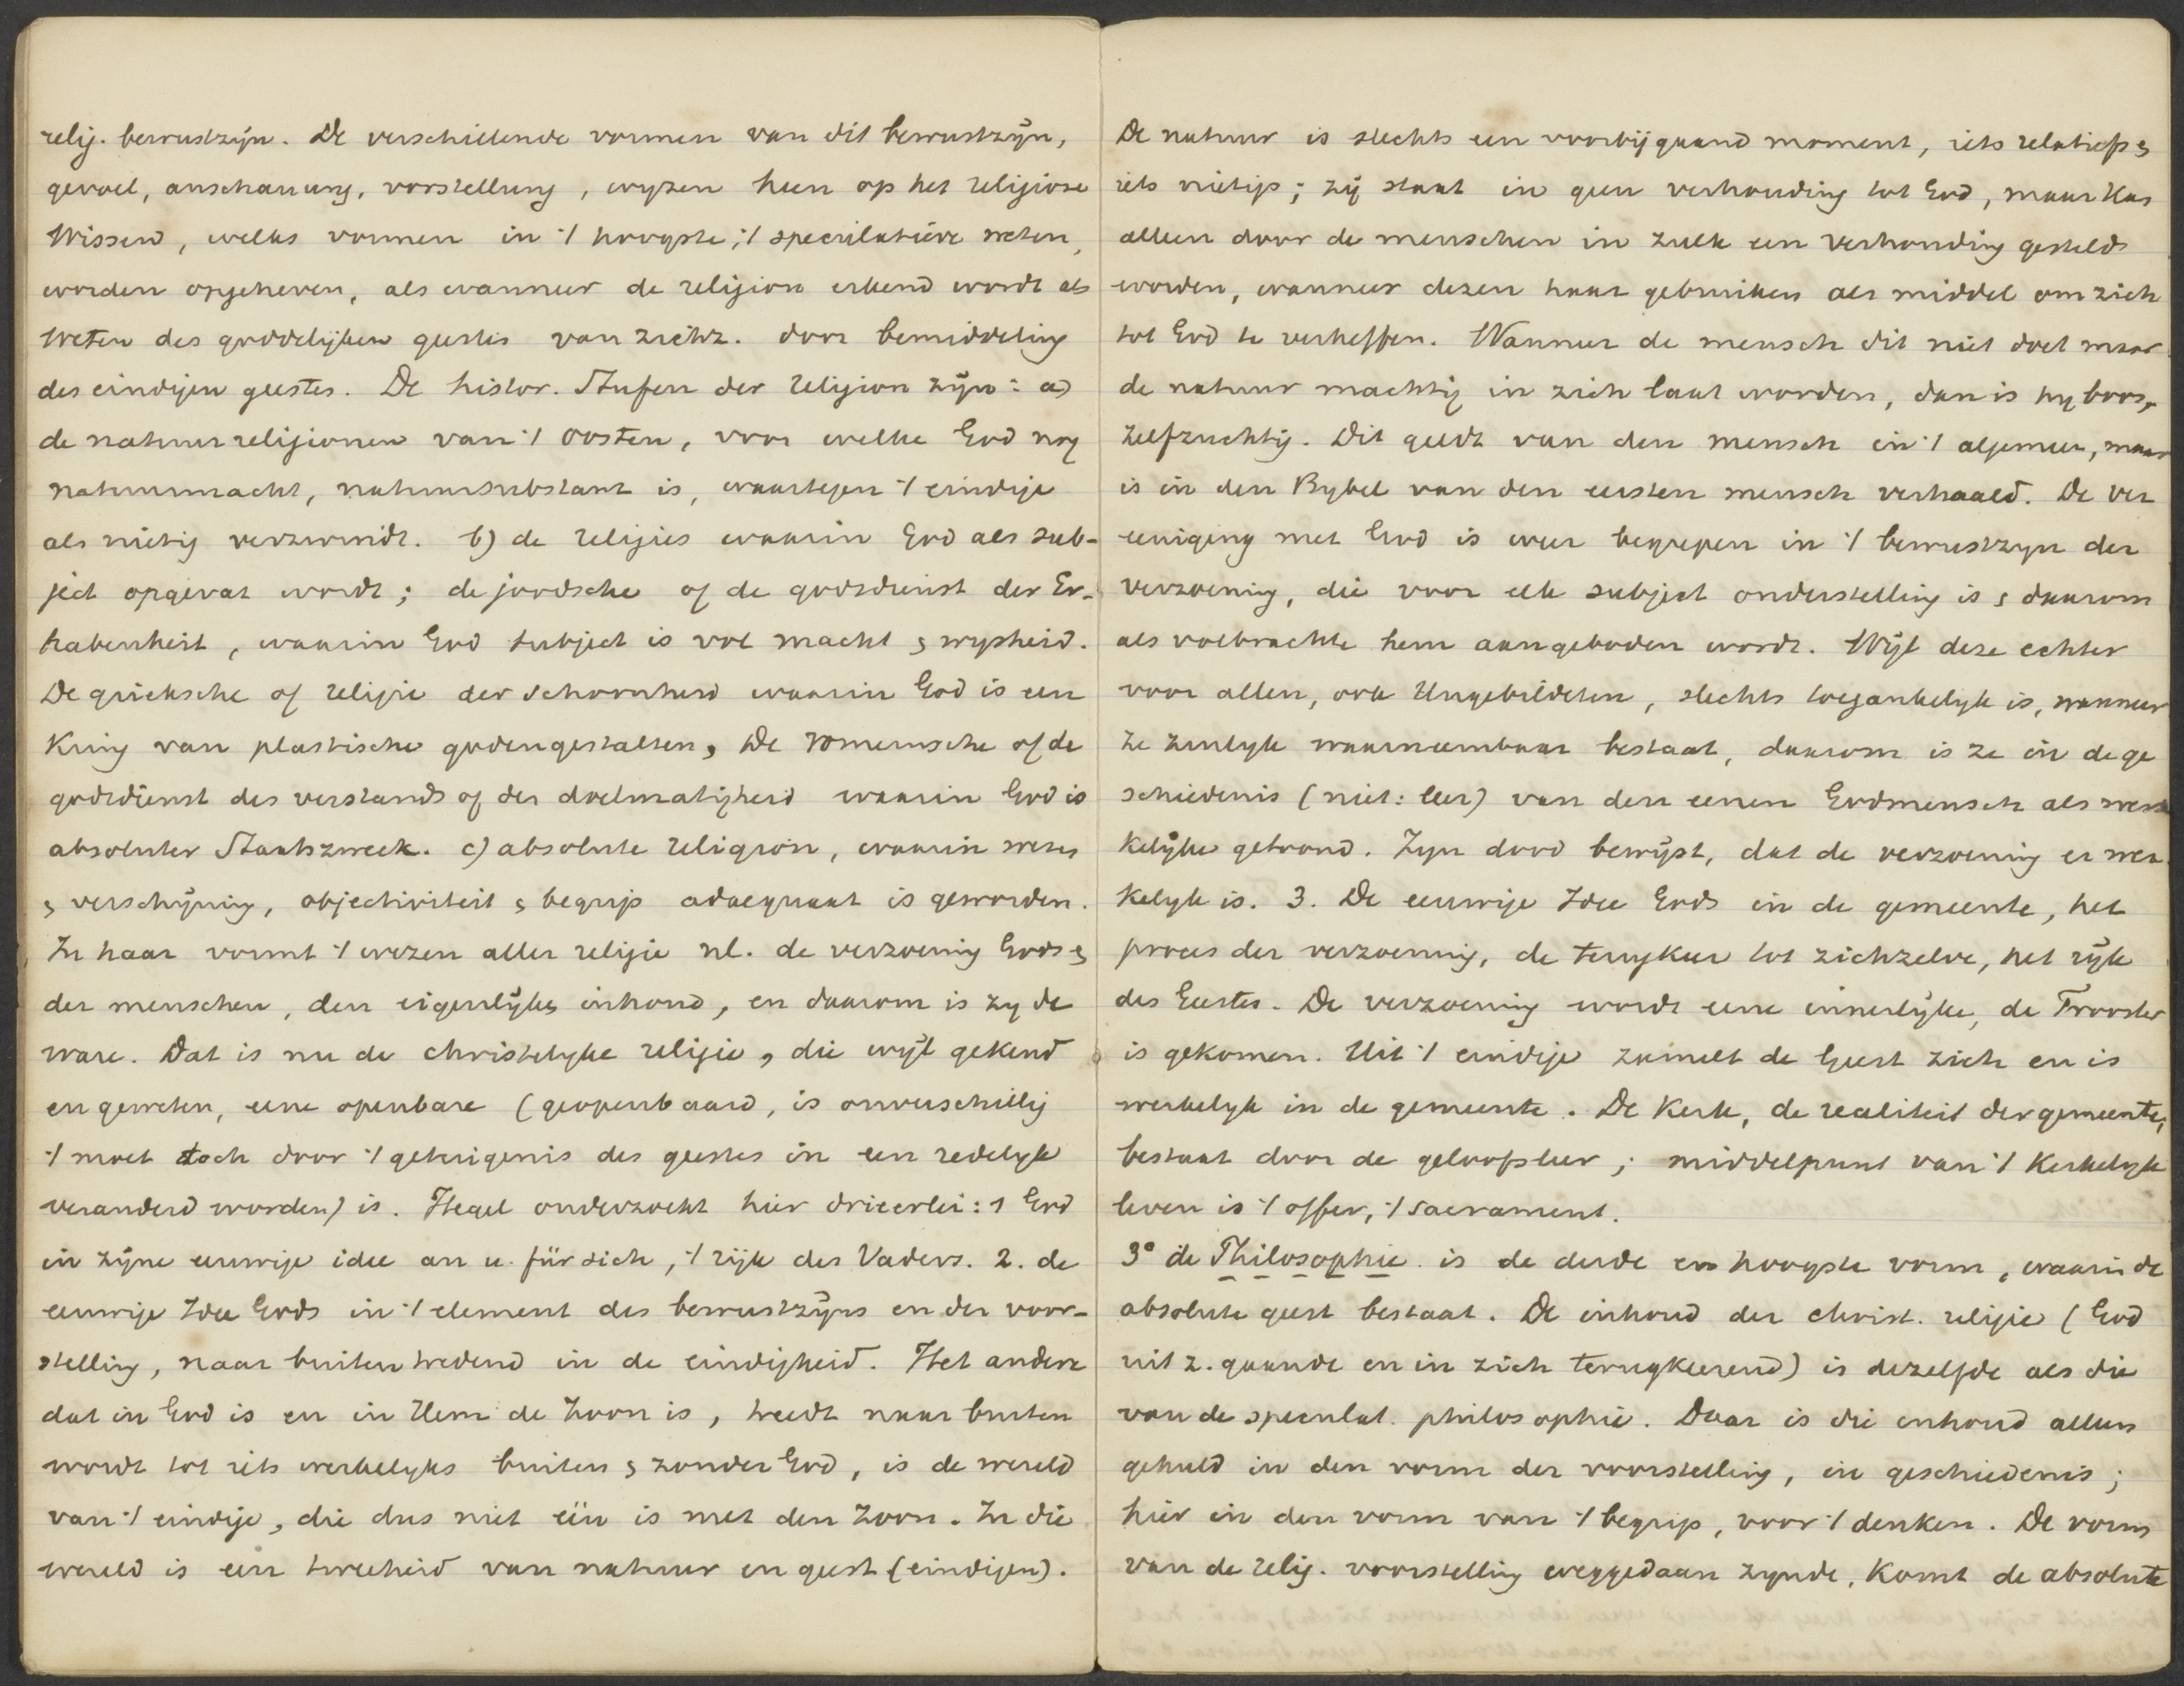 relig. bewustzijn. De verschillende vormen van dit bewustzijn,
gevoel, anschauung, vorstellung, wyzen heen op het religiose
Wissen, welks vormen in 't hoogste, 't speculatieve weten,
worden opgeheven, als wanneer de religion erkend wordt als
Weten des goddelijken geestes van zichz. door bemiddeling
des eindigen geestes. De histor. Stufen der religion zijn: a)
de natuurreligionen van 't Oosten, voor welke God nog
natuurmacht, natuursubstanz is, waartegen 't eindige
als nietig verzwindt. b) de religies waarin God als sub-
ject opgevat wordt; de joodsche of de godsdienst der Er-
habenheit, waarin God subject is vol macht & wysheid.
De grieksche of religie der schoonheid waarin God is een
Kring van plastische godengestalten, De romeinsche of de
godsdienst des verstands of der doelmatigheid waarin God is
absoluter Staatszweck. c) absolute religion, waarin wezen
& verschijning, objectiviteit & begrip adaequaat is geworden.
In haar vormt 't wezen aller religie nl. de verzoening Gods &
der menschen, den eigenlijken inhoud, en daarom is zy de
ware. Dat is nu de christelyke religie, die wijl gekend
en geweten, eene openbare (geopenbaard, is onverschillig
't moet toch door 't getuigenis des geestes in een redelyk
veranderd worden) is. Hegel onderzoekt hier drieerlei: 1 God
in zijne eeuwige idee an u. für sich, 't rijk des Vaders. 2. de
eeuwige Idee Gods in 't element des bewustzijns en der voor-
stelling, naar buiten tredend in de eindigheid. Het andere
dat in God is en in Hem de Zoon is, treedt naar buiten
wordt tot iets werkelyks buiten & zonder God, is de wereld
van 't eindige, die dus niet één is met den Zoon. In die
wereld is een tweeheid van natuur en geest (eindigen).
De natuur is slechts een voorbijgaand moment, iets relatiefs &
iets nietigs; zij staat in geen verhouding tot God, maar kan
alleen door de menschen in zulk een verhouding gesteld
worden, wanneer dezen haar gebruiken als middel om zich
tot God te verheffen. Wanneer de mensch dit niet doet maar
de natuur machtig in zich laat worden, dan is hy boos,
zelfzuchtig. Dit geldt van den mensch in 't algemeen, maar
is in den Bybel van den eersten mensch verhaald. De ver
eeniging met God is weer begrepen in 't bewustzyn der
verzoening, die voor elk subject onderstelling is & daarom
als volbrachte hem aangeboden wordt. Wijl deze echter
voor allen, ook Ungebildeten, slechts toegankelyk is, wanneer
ze zinlyk waarneembaar bestaat, daarom is ze in de ge
schiedenis (niet: leer) van den eenen Godmensch als werke
Kelijke getoond. Zyn dood bewijst, dat de verzoening er wer
kelyk is. 3. De eeuwige Idee Gods in de gemeente, het
proces der verzoening, de terugkeer tot zichzelve, het rijk
des Geestes. De verzoening wordt eene innerlijke, de Trooster
is gekomen. Uit 't eindige zamelt de Geest zich en is
werkelyk in de gemeente. De Kerk, de realiteit der gemeente,
bestaat door de geloofsleer; middelpunt van 't Kerkelyk
leven is 't offer, 't sacrament.
3° de Philosophie is de derde en hoogste vorm, waarin de
absolute geest bestaat. De inhoud der christ. religie (God
uit z. gaande en in zich terugkeerend) is dezelfde als die
van de speculat. philosophie. Daar is die inhoud alleen
gehuld in den vorm der voorstelling, in geschiedenis;
hier in den vorm van 't begrip, voor 't denken. De vorm
van de relig. voorstelling weggedaan zynde, komt de absolute